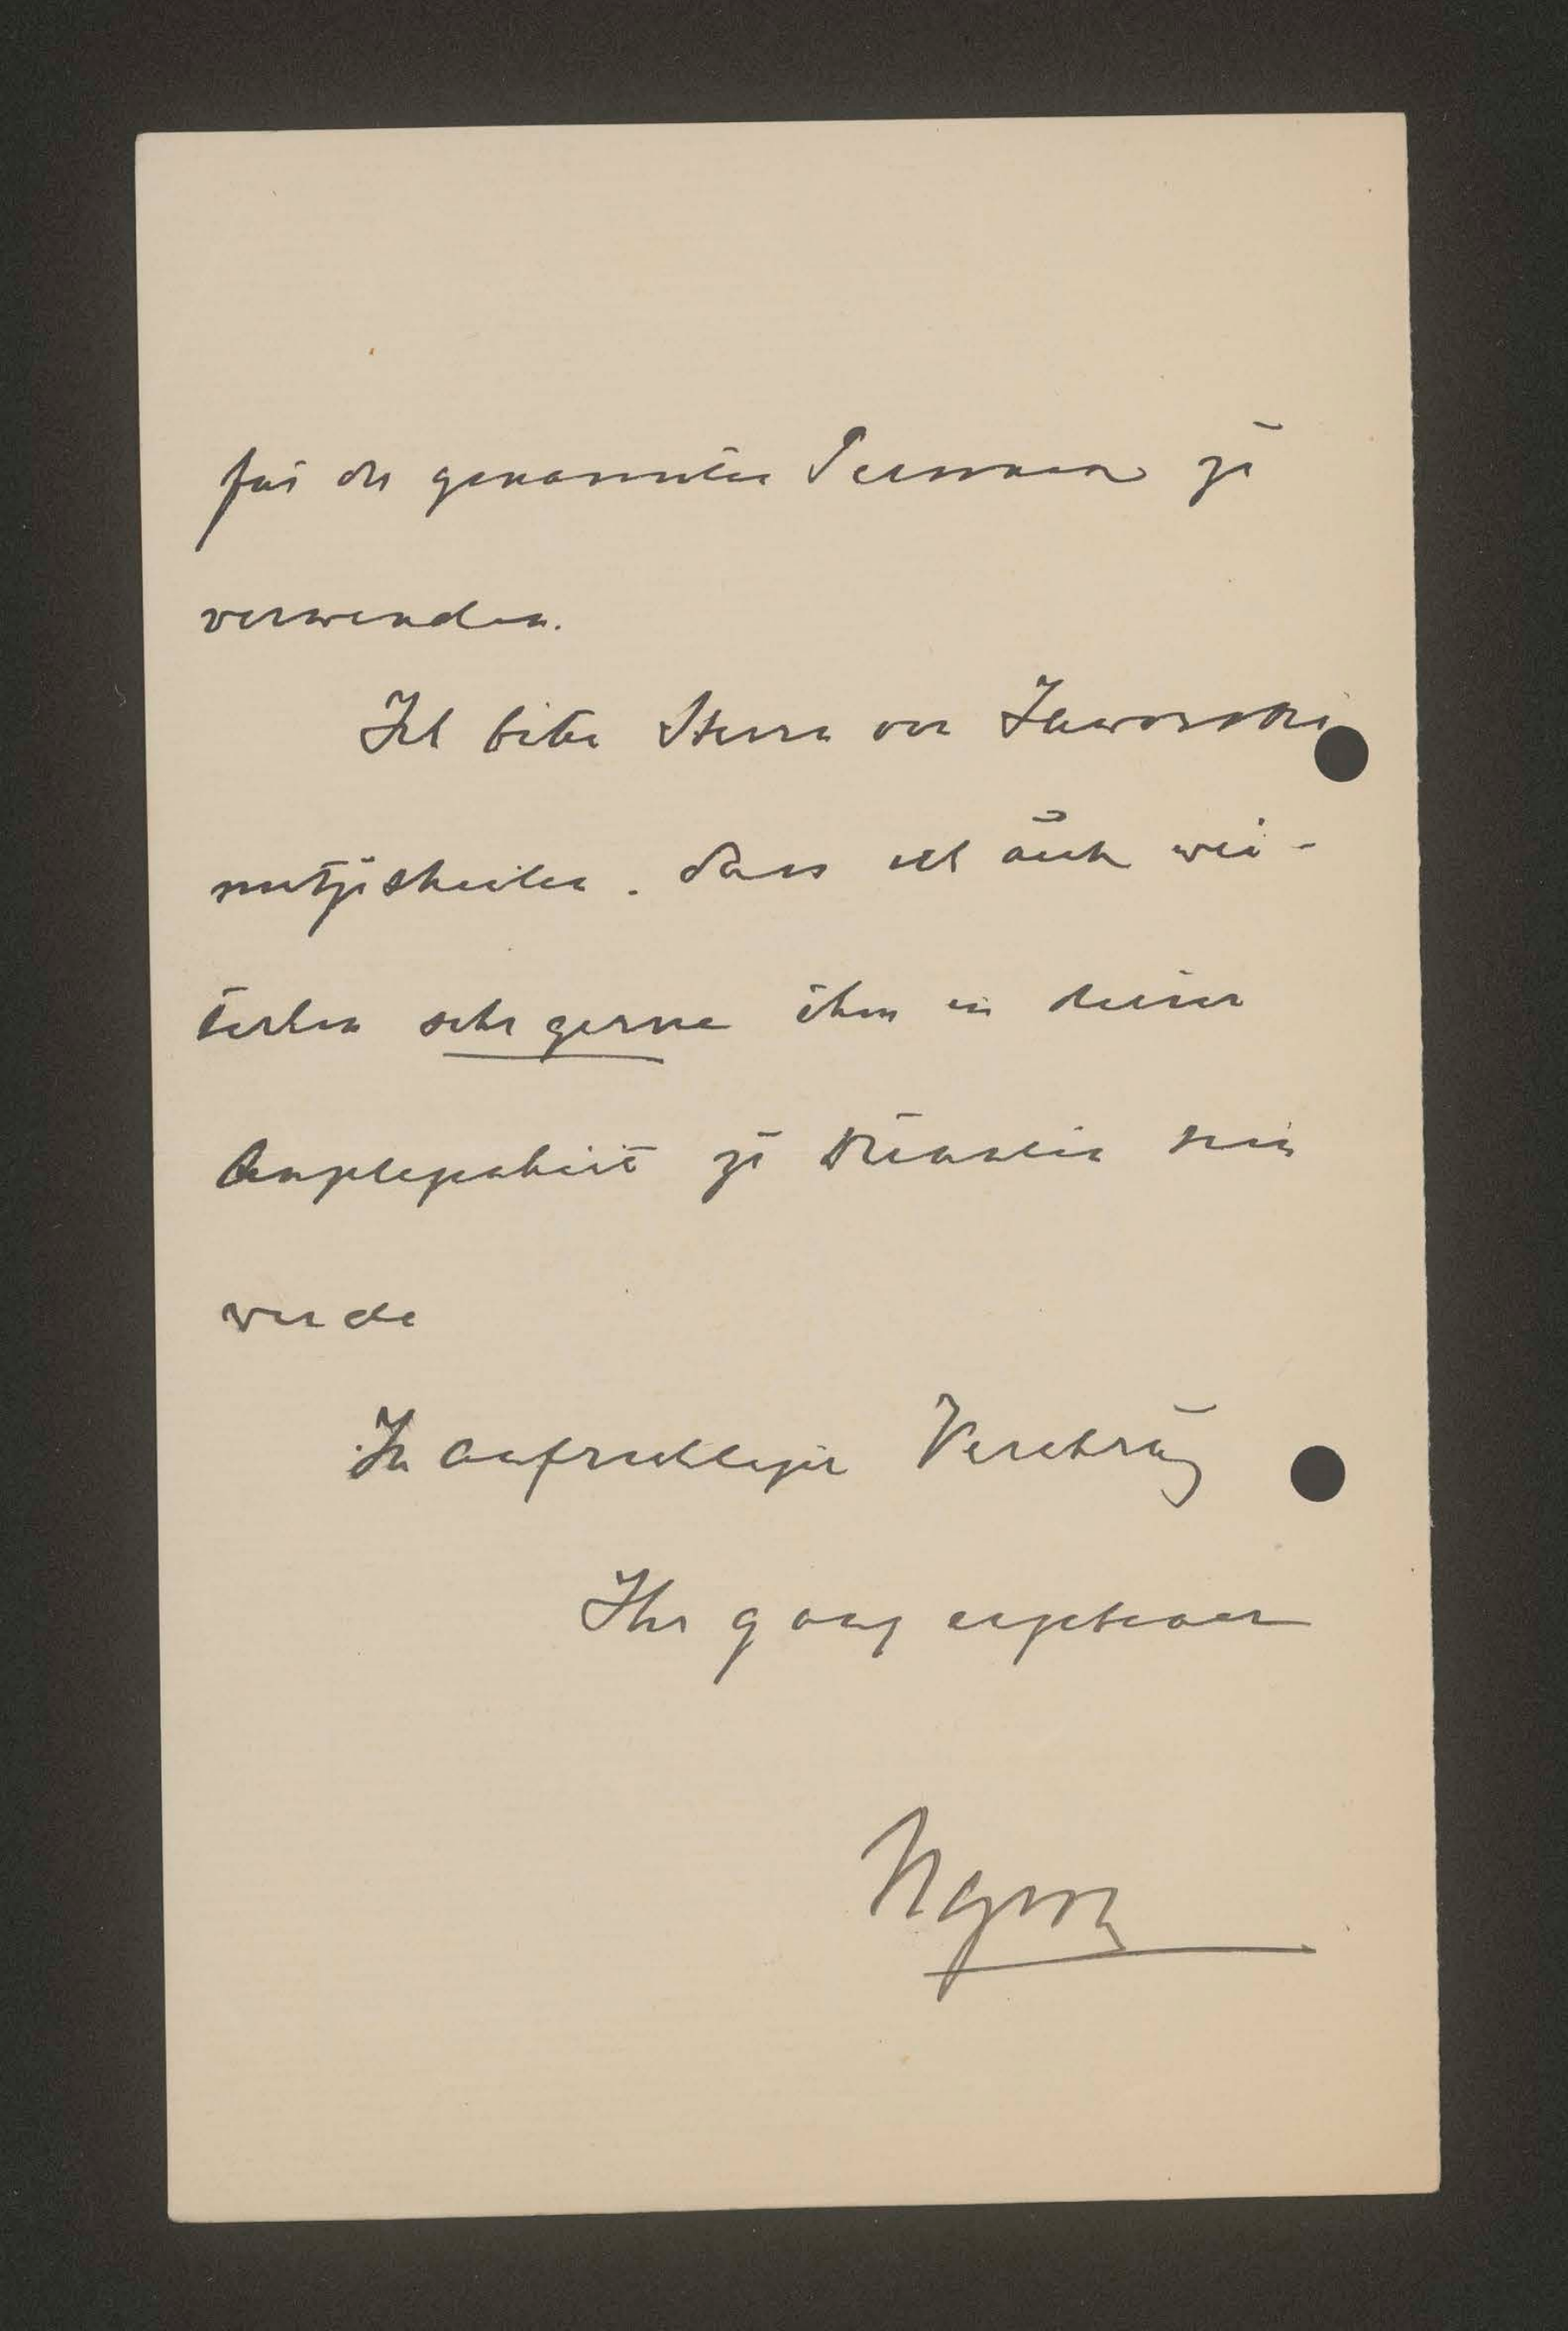 für die genannten Personen zu
verwenden.
Ich bitte Herrn von Jaworski
mitzutheilen, dass ich auch wei-
terhin sehr gerne ihm in dieser
Angelegenheit zu Diensten sein
werde
In aufrichtiger Verehrung
Ihr ganz ergebener